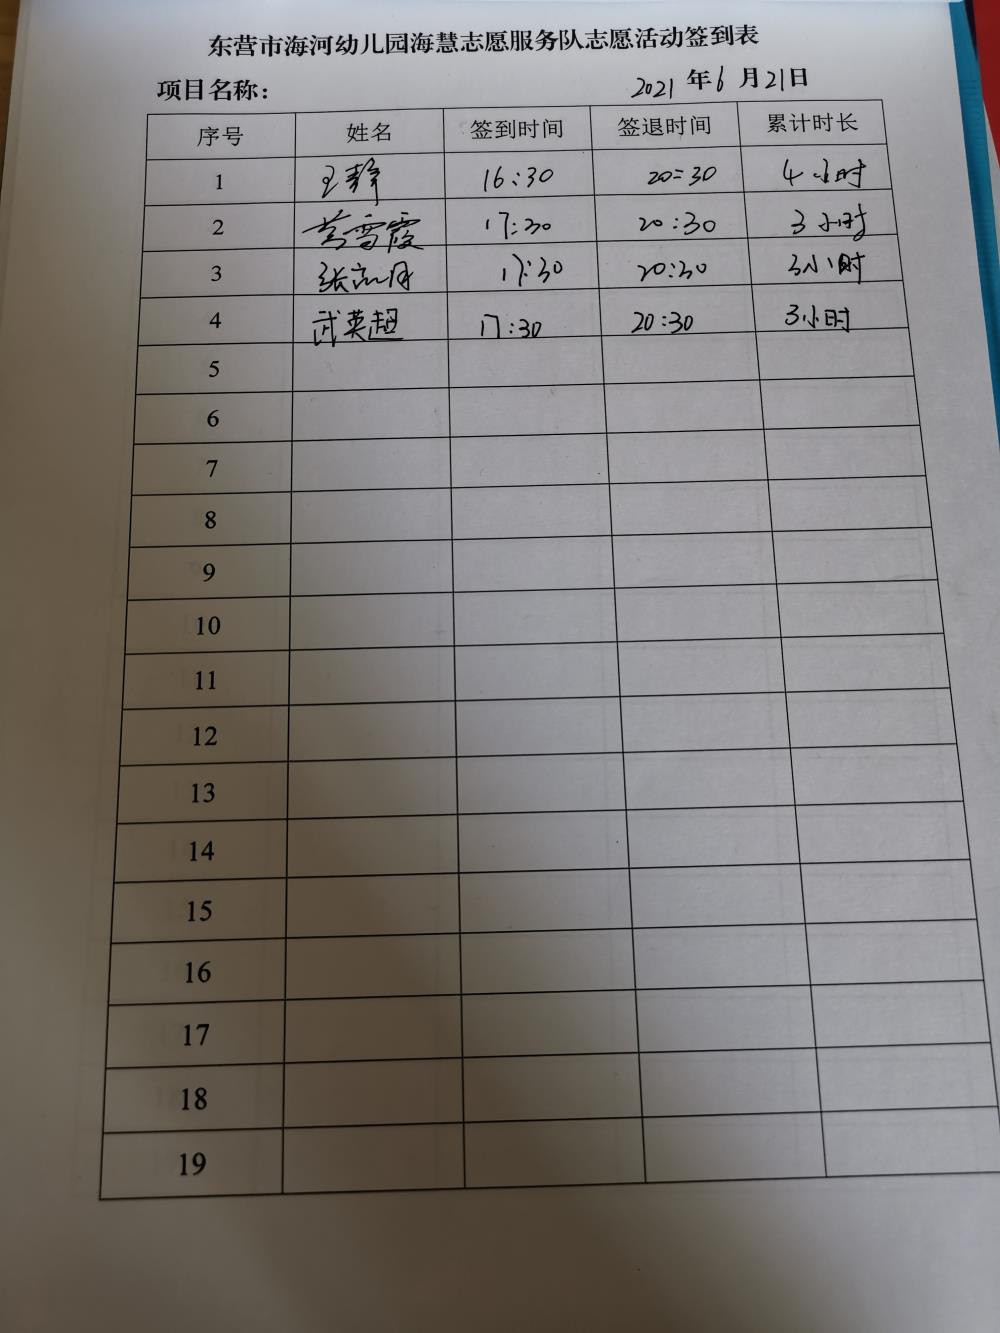 东营市海河幼儿园海慧志愿服务队志愿活动签到表
项目名称： 2021年6月21日
序号 姓名 签到时间 签退时间 累计时长
1 王静 16:30 20:30 4小时
2 雪霞 17:30 20:30 3小时
3 张 月 17:30 20:30 3小时
4 武英超 17:30 20:30 3小时
5
6
7
8
9
10
11
12
13
14
15
16
17
18
19